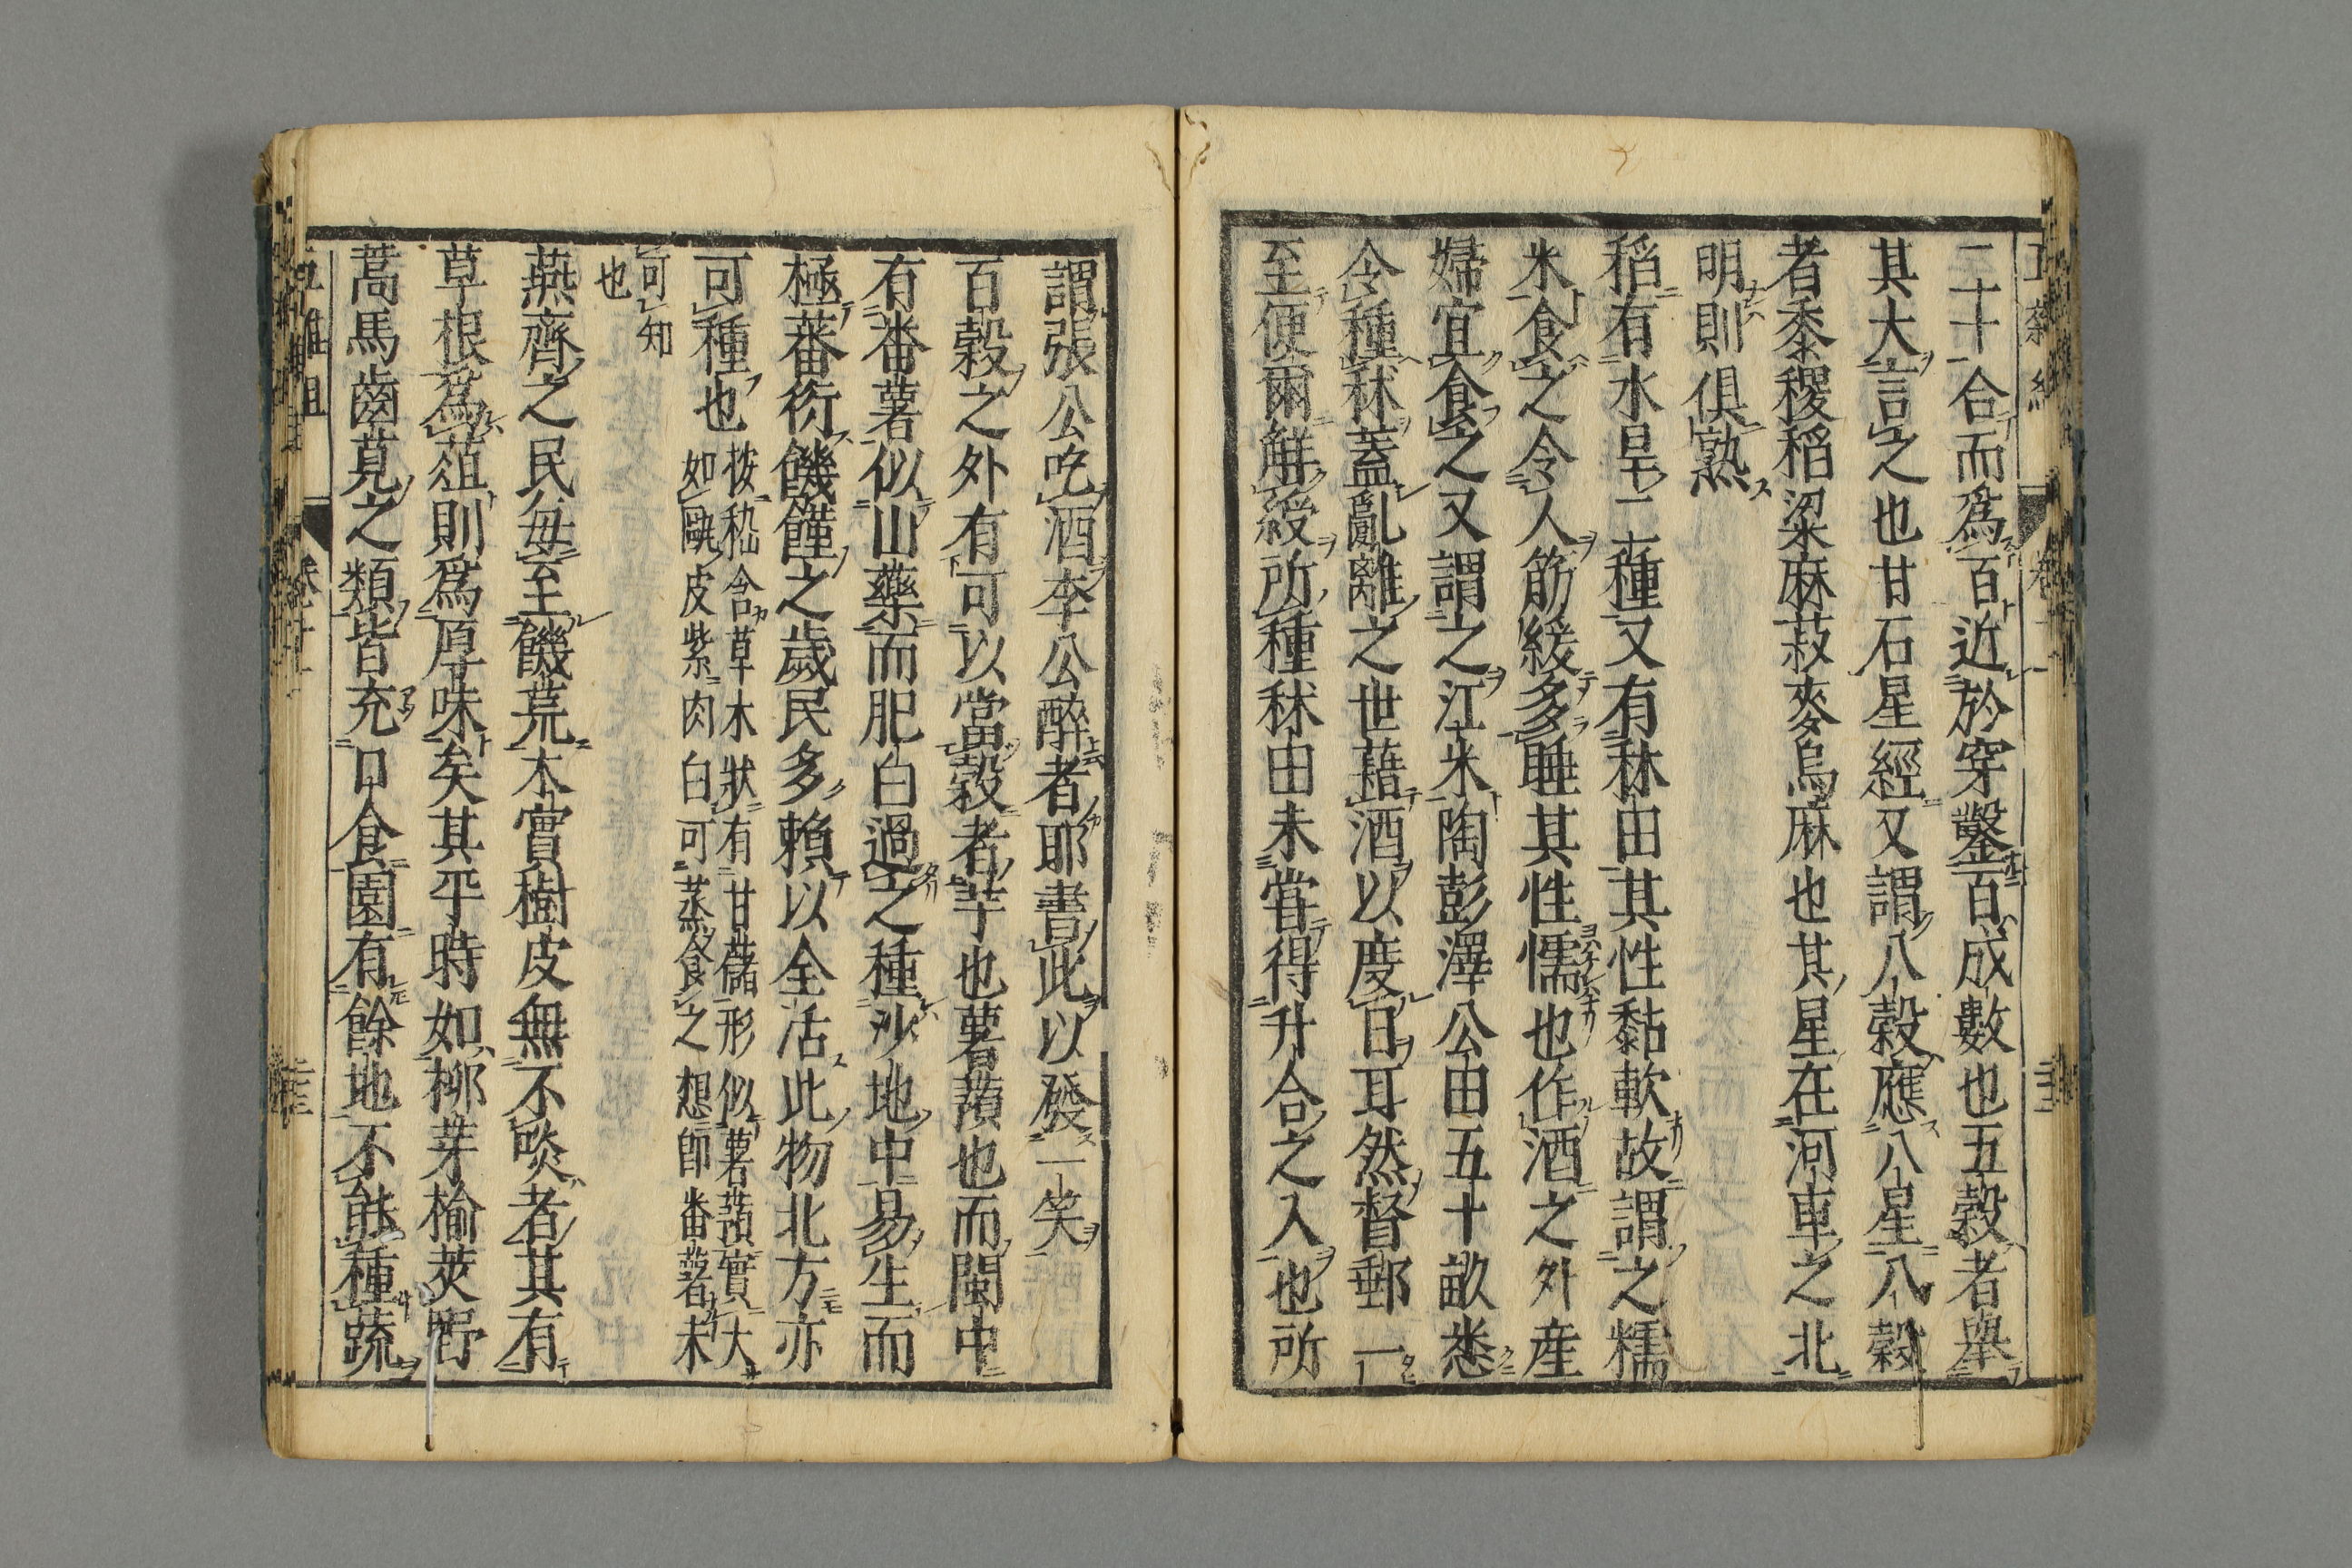 二十合而爲百近於穿鑿百成數也五穀者舉
其大言之也甘石星經又謂八穀應八星八穀
者黍稷稻梁麻菽麥烏麻也其星在河車之北
明則俱熟
稻有水旱二種又有秫田其性黏軟故謂之糯
米食之令人筋緩多睡其性懦也作酒之外産
婦宜食之又謂之江米陶彭澤公田五十畝悉
令種秫蓋亂離之世藉酒以度日耳然督郵一
至便爾解綬所種秫田未嘗得升合之入也所
謂張公吃酒李公醉者耶書此以發一笑
百穀之外有可以當穀者芋也薯蕷也而閩中
有番薯似山藥而肥白過之種沙地中易生而
極蕃衍饑饉之歲民多賴以全活此物北方亦
可種也
按嵇含草木狀有甘藷形似薯蕷實大
如甌皮紫肉白可蒸食之想卽番薯未
可知
也
燕齊之民每至饑荒木實樹皮無不啖者其有
草根爲葅則爲厚味矣其平時如柳芽榆莢野
蒿馬齒莧之類皆充口食園有餘地不能種蔬
五雜俎
卷十一